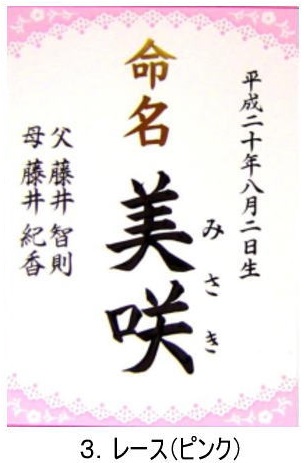 平成二十年八月二日生
命名
美咲
みさき
父 藤井 智則
母 藤井 紀香
3. レース(ピンク)